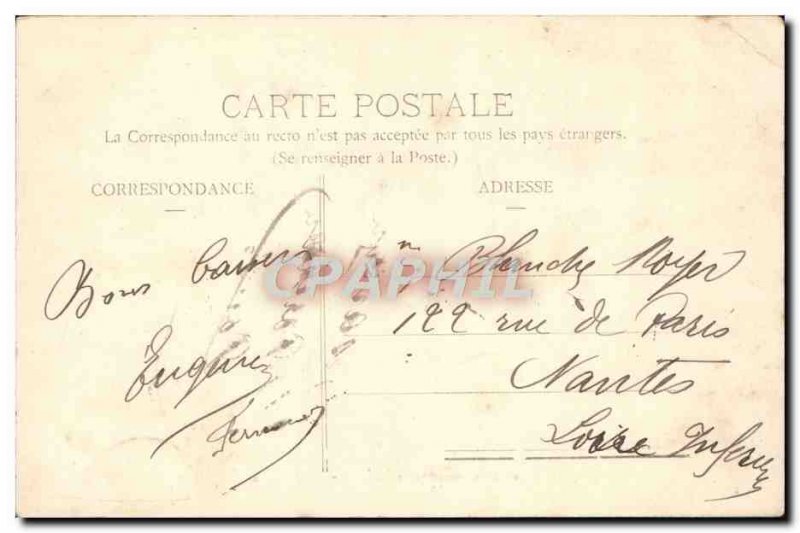 CARTE POSTALE
La Correspondance au recto n'est pas acceptée par tous les pays étrangers.
(Se renseigner à la Poste.)
CORRESPONDANCE
ADRESSE
Bons baisers
Eugénie
CPAPHIL
Blanche Royer
122 rue de Paris
Nantes
Loire Inferieure